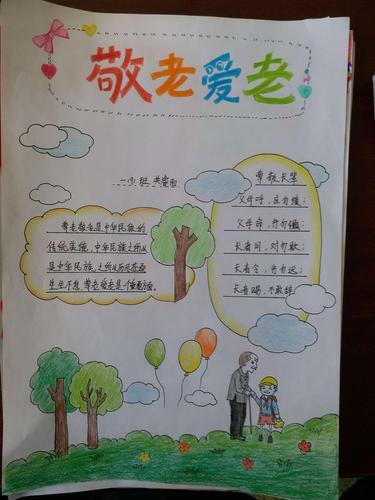 敬老爱老
尊敬长辈
父母呼，应勿缓；
父母命，行勿懒；
长者问，对勿欺；
长者令，行勿迟；
长者赐，不敢辞。
尊老敬老是中华民族的
传统美德，中华民族之所以
是中华民族，之所以历尽苍桑
生生不息，尊老爱老是个重要